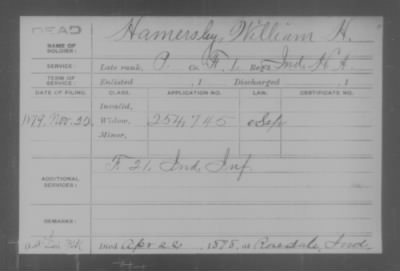 DEAD
NAME OF SOLDIER: Hamersly, William H.
SERVICE: Late rank, P. Co. F, 1, Reg't Ind. H. A.
TERM OF SERVICE: Enlisted , 1 Discharged , 1
DATE OF FILING. CLASS. APPLICATION NO. LAW. CERTIFICATE NO.
Invalid,
1879, Nov. 22. Widow, 254,745
Minor,
ADDITIONAL SERVICES: F 21, Ind. Inf.
REMARKS:
Died Apr 22, 1878, at Rosedale, Ind.